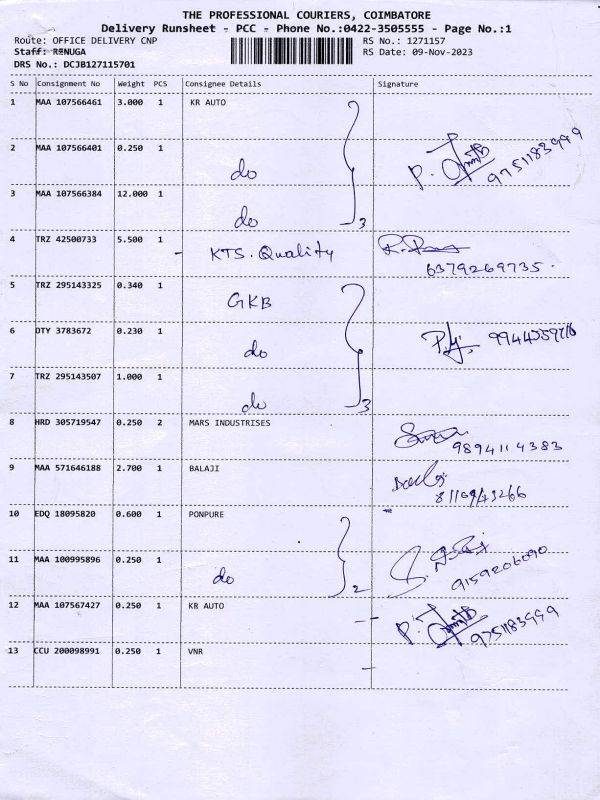 THE PROFESSIONAL COURIERS, COIMBATORE
Delivery Runsheet - PCC - Phone No.:0422-3505555 - Page No.:1
Route: OFFICE DELIVERY CNP RS No.: 1271157
Staff: RENUGA RS Date: 09-Nov-2023
DRS No.: DCJB127115701
S No Consignment No Weight PCS Consignee Details Signature
1 MAA 107566461 3.000 1 KR AUTO
2 MAA 107566401 0.250 1 do 9751183999
3 MAA 107566384 12.000 1 do 3
4 TRZ 42500733 5.500 1 KTS. Quality
6379269735.
5 TRZ 295143325 0.340 1 GKB
6 OTY 3783672 0.230 1 do
7 TRZ 295143507 1.000 1 do 3
8 HRD 305719547 0.250 2 MARS INDUSTRISES
9894114383
9 MAA 571646188 2.700 1 BALAJI
10 EDQ 18095820 0.600 1 PONPURE
11 MAA 100995896 0.250 1 do 2 9159206090
12 MAA 107567427 0.250 1 KR AUTO 9751183999
13 CCU 200098991 0.250 1 VNR